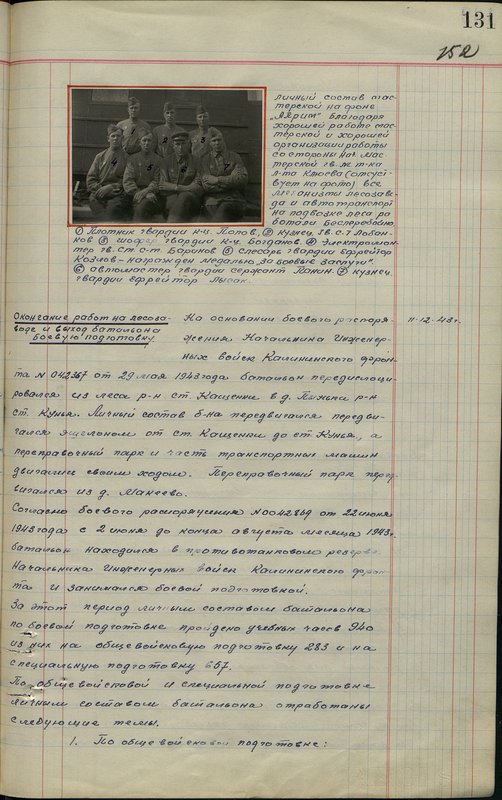 131
152
личный состав мас-
терской на фоне
Благодаря
хорошей работе мас-
терской и хорошей
организации работы
со стороны нач. мас-
терской гв. т-ка
л-та Клюева (отсутс-
твует на фото) все
механизмы лесозаво-
да и автотранспорт
на подвозке леса ра-
ботали бесперебойно.
① Плотник гвардии к-ц. Попов, ② кузнец гв. с-т Лобан-
нов ③ шофер гвардии к-ц. Богданов ④ Электромон-
тер гв. ст. с-т Баринов ⑤ слесарь гвардии ефрейтор
Козлов - награжден медалью „За боевые заслуги".
⑥ автомастер гвардии сержант Панин ⑦ кузнец
гвардии ефрейтор Лысак.
1
2
3
4
5
6
7
Окончание работ на лесоза-
воде и выход батальона
на боевую подготовку
На основании боевого распоря-
11.12.43г.
жения Начальника Инженер-
ных войск Калининского фрон-
та N 042367 от 29 мая 1943 года батальон передислоци-
ровался из леса р-н ст. Кащенки в д. р-н
ст. Кунья. Личный состав б-на передвигался передви-
гался эшелоном от ст. Кащенки до ст. Кунья, а
переправочный парк и часть транспортных машин
двигались своим ходом. Переправочный парк перед-
вигался из д. Макеево.
Согласно боевого распоряжения N 0042869 от 22 июня
1943 года с 2 июня до конца августа месяца 1943г.
батальон находился в противотанковом резерве
Начальника Инженерных войск Калининского фрон-
та и занимался боевой подготовкой.
За этот период личным составом батальона
по боевой подготовке пройдено учебных часов 940
из них на общевойсковую подготовку 283 и на
специальную подготовку 657.
По общевойсковой и специальной подготовке
личным составом батальона отработаны
следующие темы.
1. По общевойсковой подготовке: